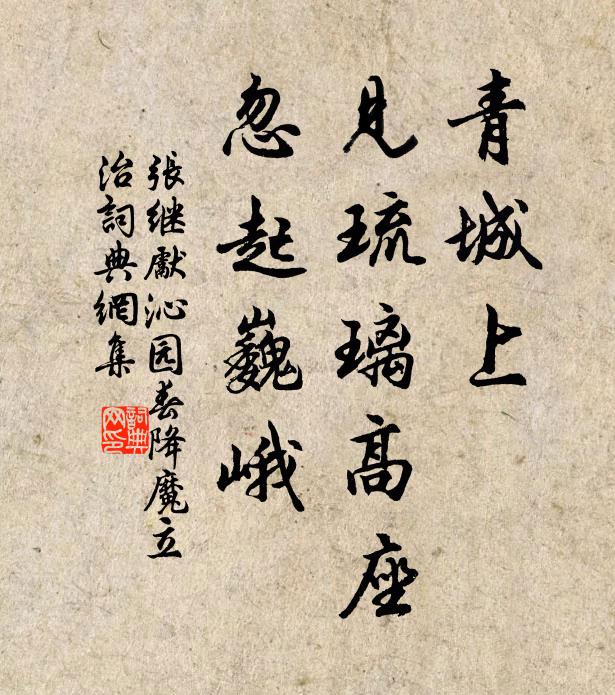 青城上
見琉璃高座
忽起巍峨
張继獻沁园春降魔立
治詞典網集
詞典
网印